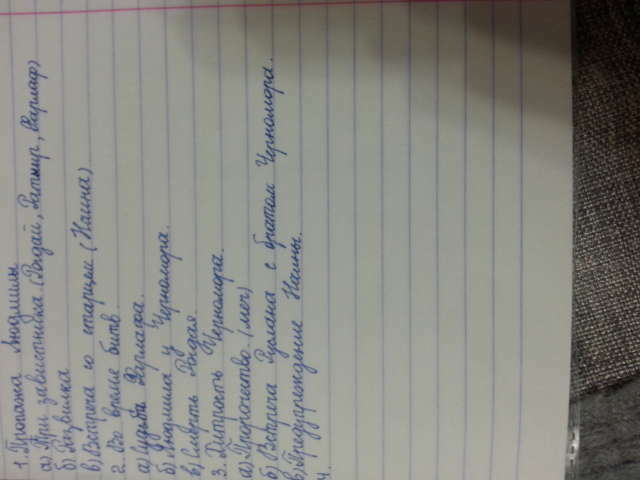 1. Пропажа Людмилы
а) Три завистника (Рогдай, Ратмир, Фарлаф)
б) Развилка
в) Встреча со старцем (Наина)
2. Во время битв
а) Судьба Фарлафа.
б) Людмила у Черномора.
в) Смерть Рогдая
3. Хитрость Черномора.
а) Пророчество. (меч)
б) Встреча Руслана с братом Черномора.
в) Предупреждение Наины.
4.